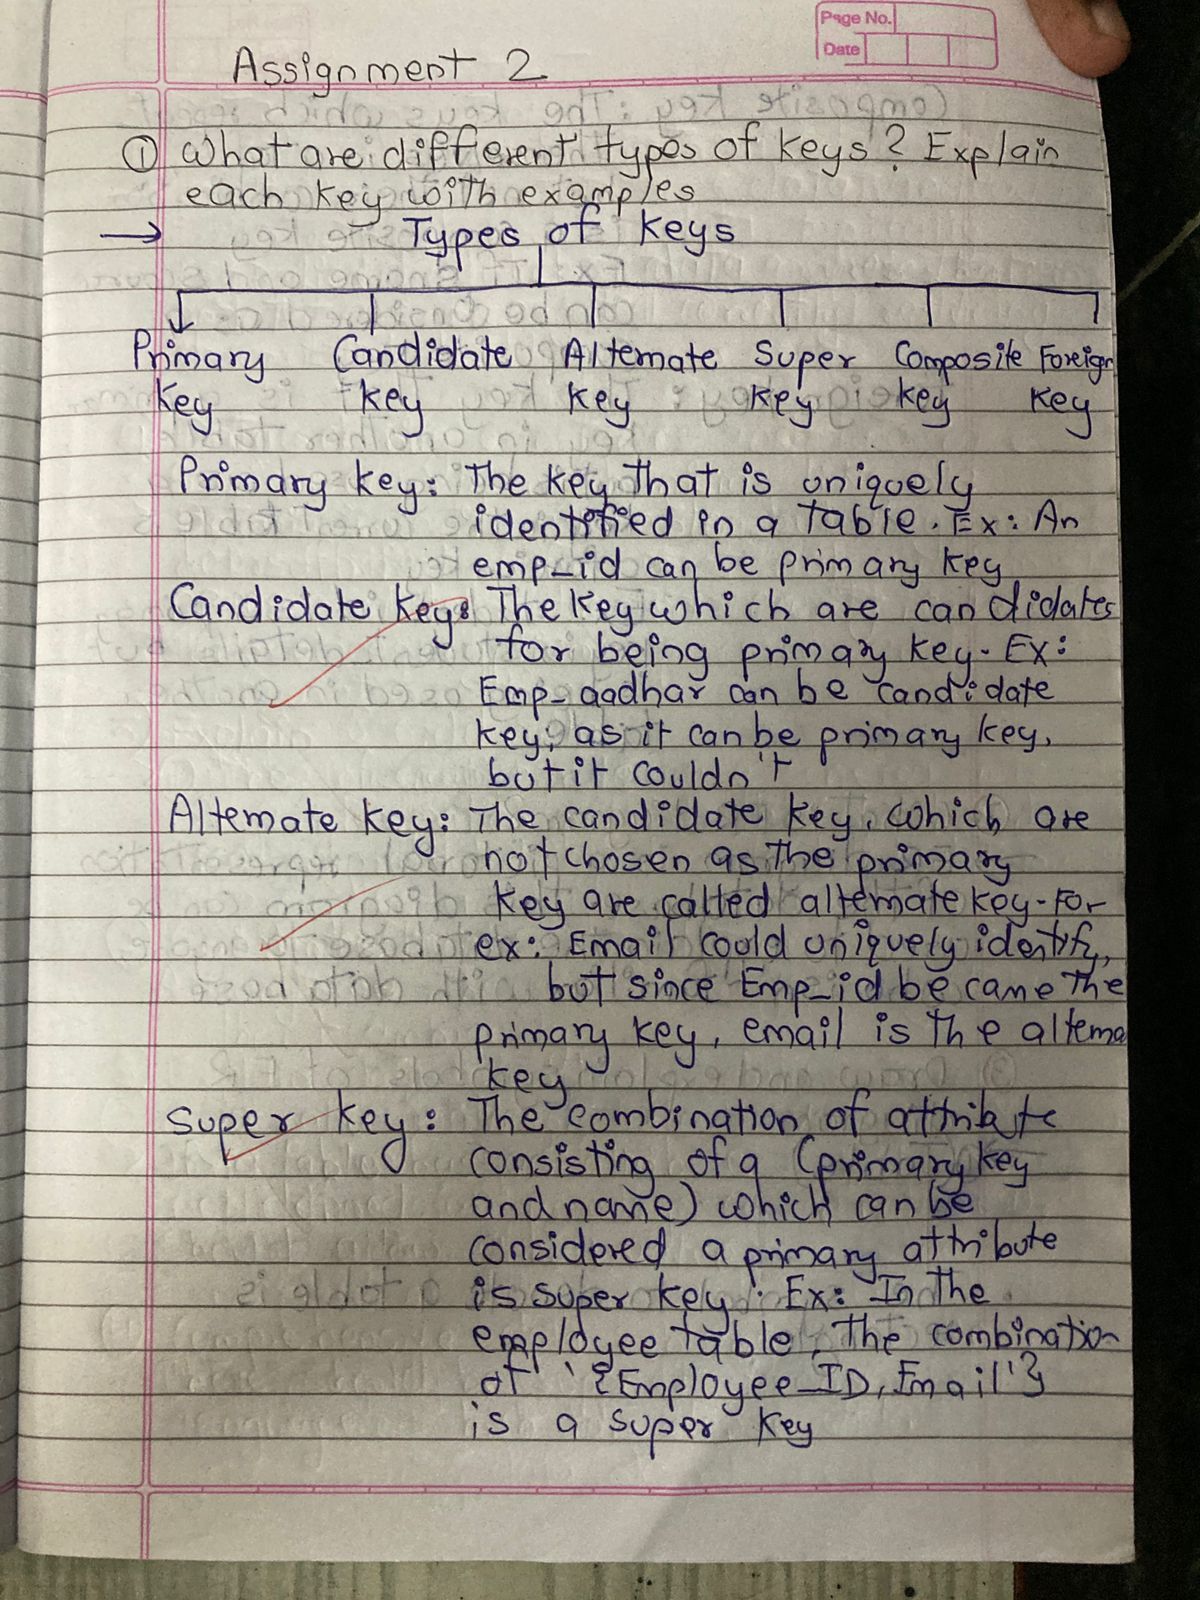 Page No.
Date
Assignment 2
① What are different types of keys? Explain
each key with examples
→ Types of keys
Primary Candidate Alternate Super Composite Foreign
key key key key key key
Primary key: The key that is uniquely
identified in a table. Ex: An
emp_id can be primary key
Candidate key: The key which are candidates
for being primary key. Ex:
Emp_aadhar can be candidate
key, as it can be primary key,
but it couldn't
Alternate key: The candidate key, which are
not chosen as the primary
key are called alternate key. For
ex: Email could uniquely identify,
but since Emp_id be came the
primary key, email is the alterna
key
Super key: The combination of attribute
consisting of a (primary key
and name) which can be
considered a primary attribute
is super key. Ex: In the
employee table, the combination
of '{Employee_ID, Email'}
is a super key